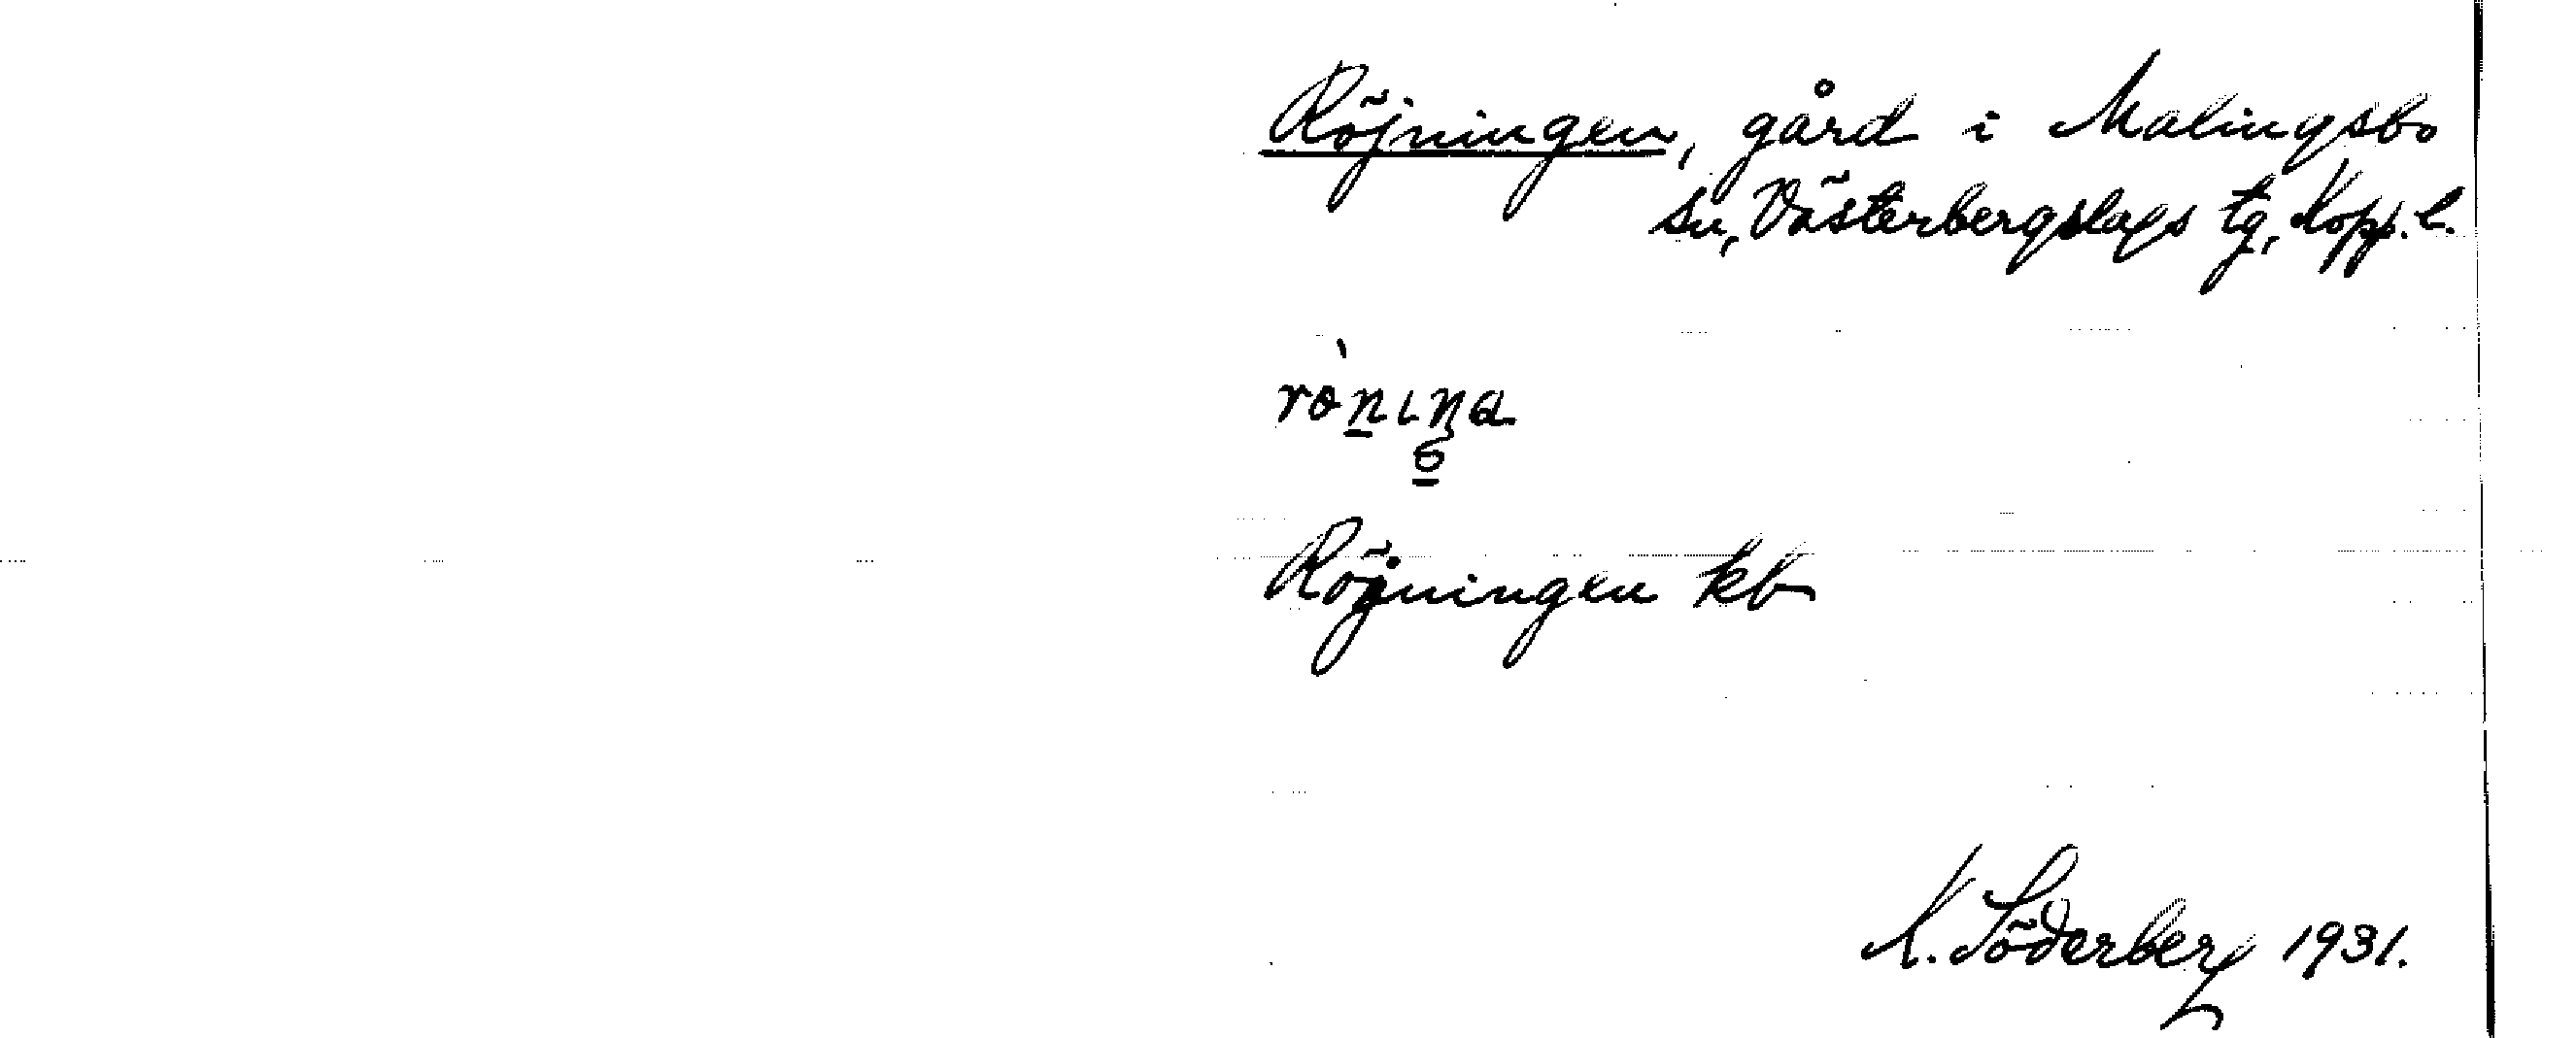 Röjningen, gård i Malingsbo
sn, Västerbergslags tg, Kopp. l.
Röjningen kb
K. Söderberg 1931.